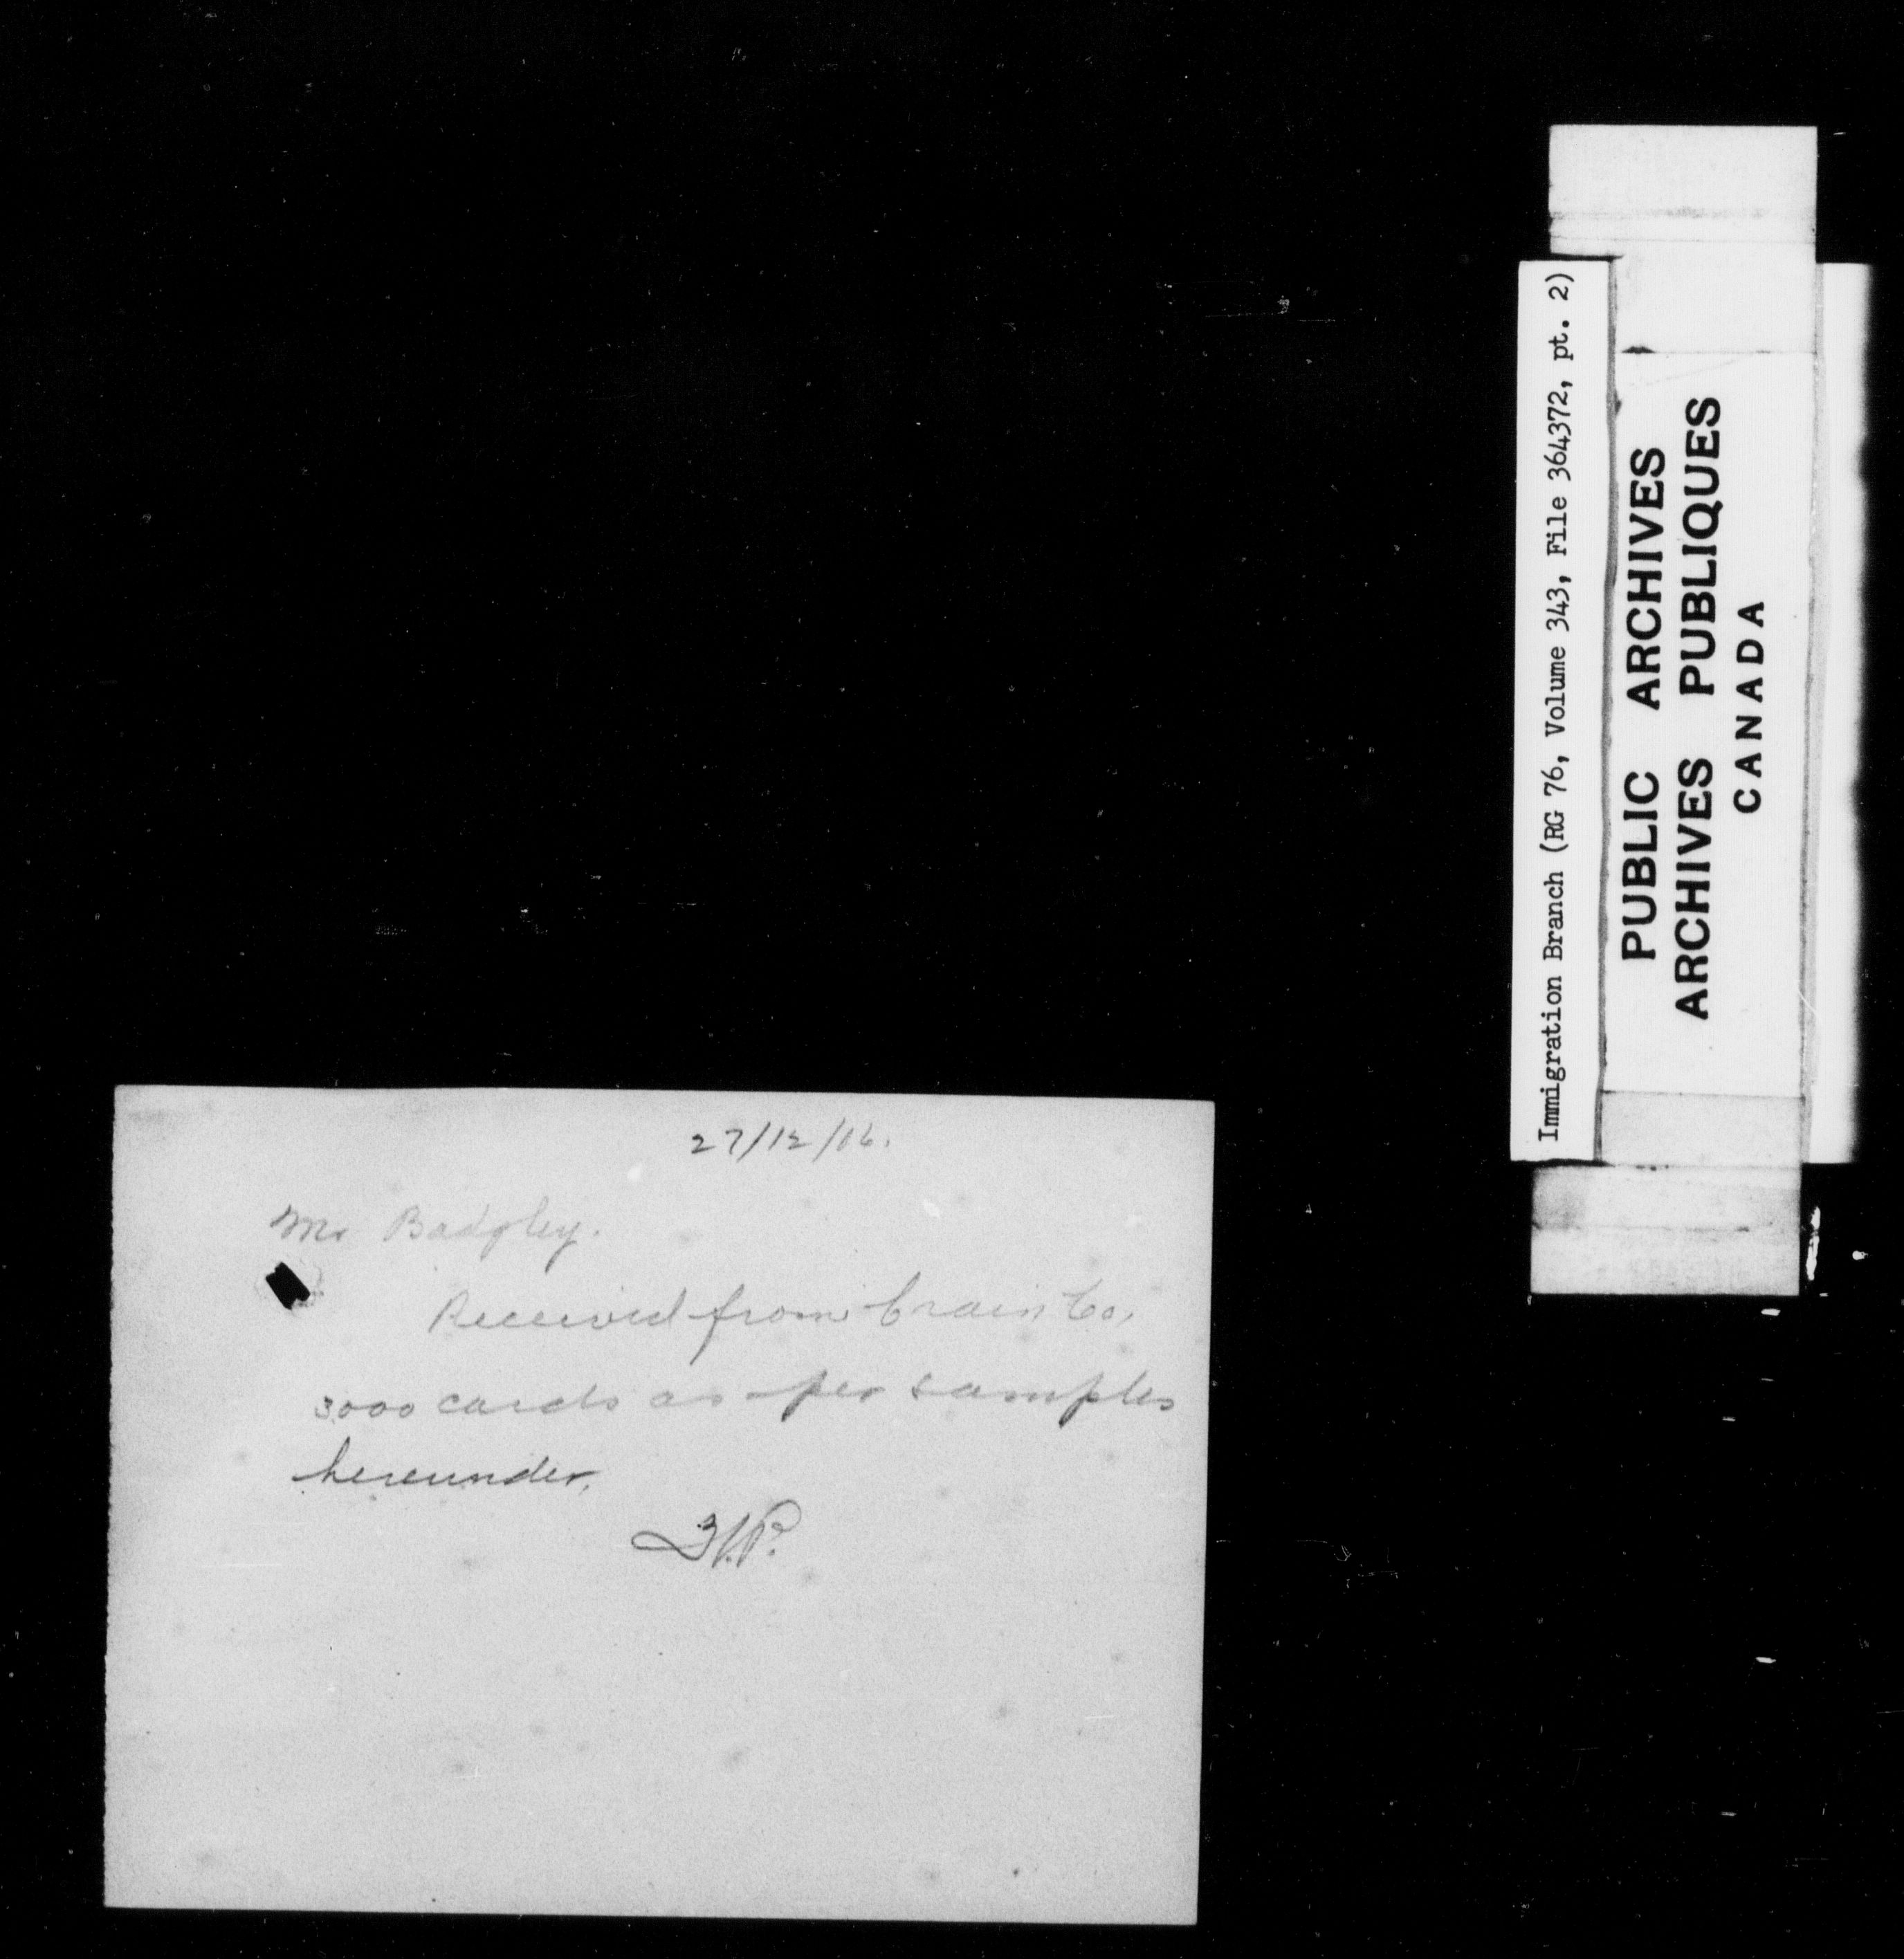 27/12/16.
Mr Badgley.
Received from Crain Co.
3000 cards as per samples
hereunder.
Immigration Branch (RG 76, Volume 343, File 364372, pt. 2)
PUBLIC ARCHIVES
ARCHIVES PUBLIQUES
CANADA